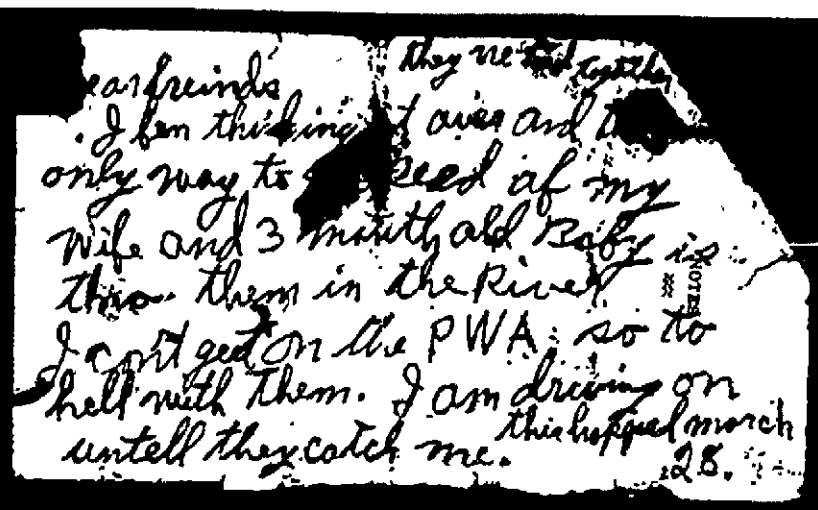 they
earfreinds
. I ben thinking it over and
only way to of my
wife and 3 month old Baby is
thro them in the River
I cont get on the PWA so to
hell with them. I am driving on
untell they catch me.
this happed march
28.
NOTES